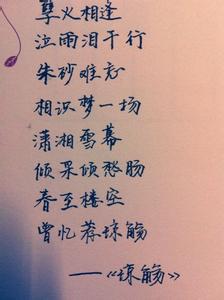 孽火相逢
泣雨泪千行
朱砂难忘
相识梦一场
潇湘雪幕
倾杯倾愁肠
春至楼空
曾忆荐琼觞
——《琼觞》